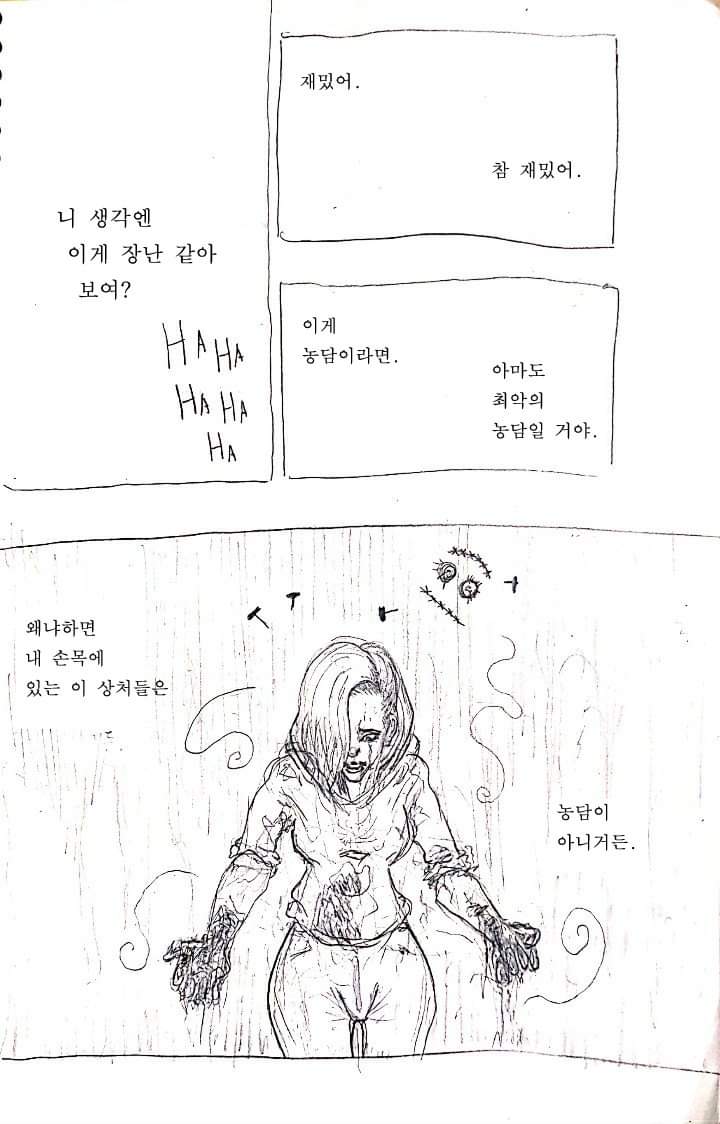 니 생각엔
이게 장난 같아
보여?
HA HA
HA HA
HA
재밌어.
참 재밌어.
이게
농담이라면.
아마도
최악의
농담일 거야.
왜냐하면
내 손목에
있는 이 상처들은
농담이
아니거든.